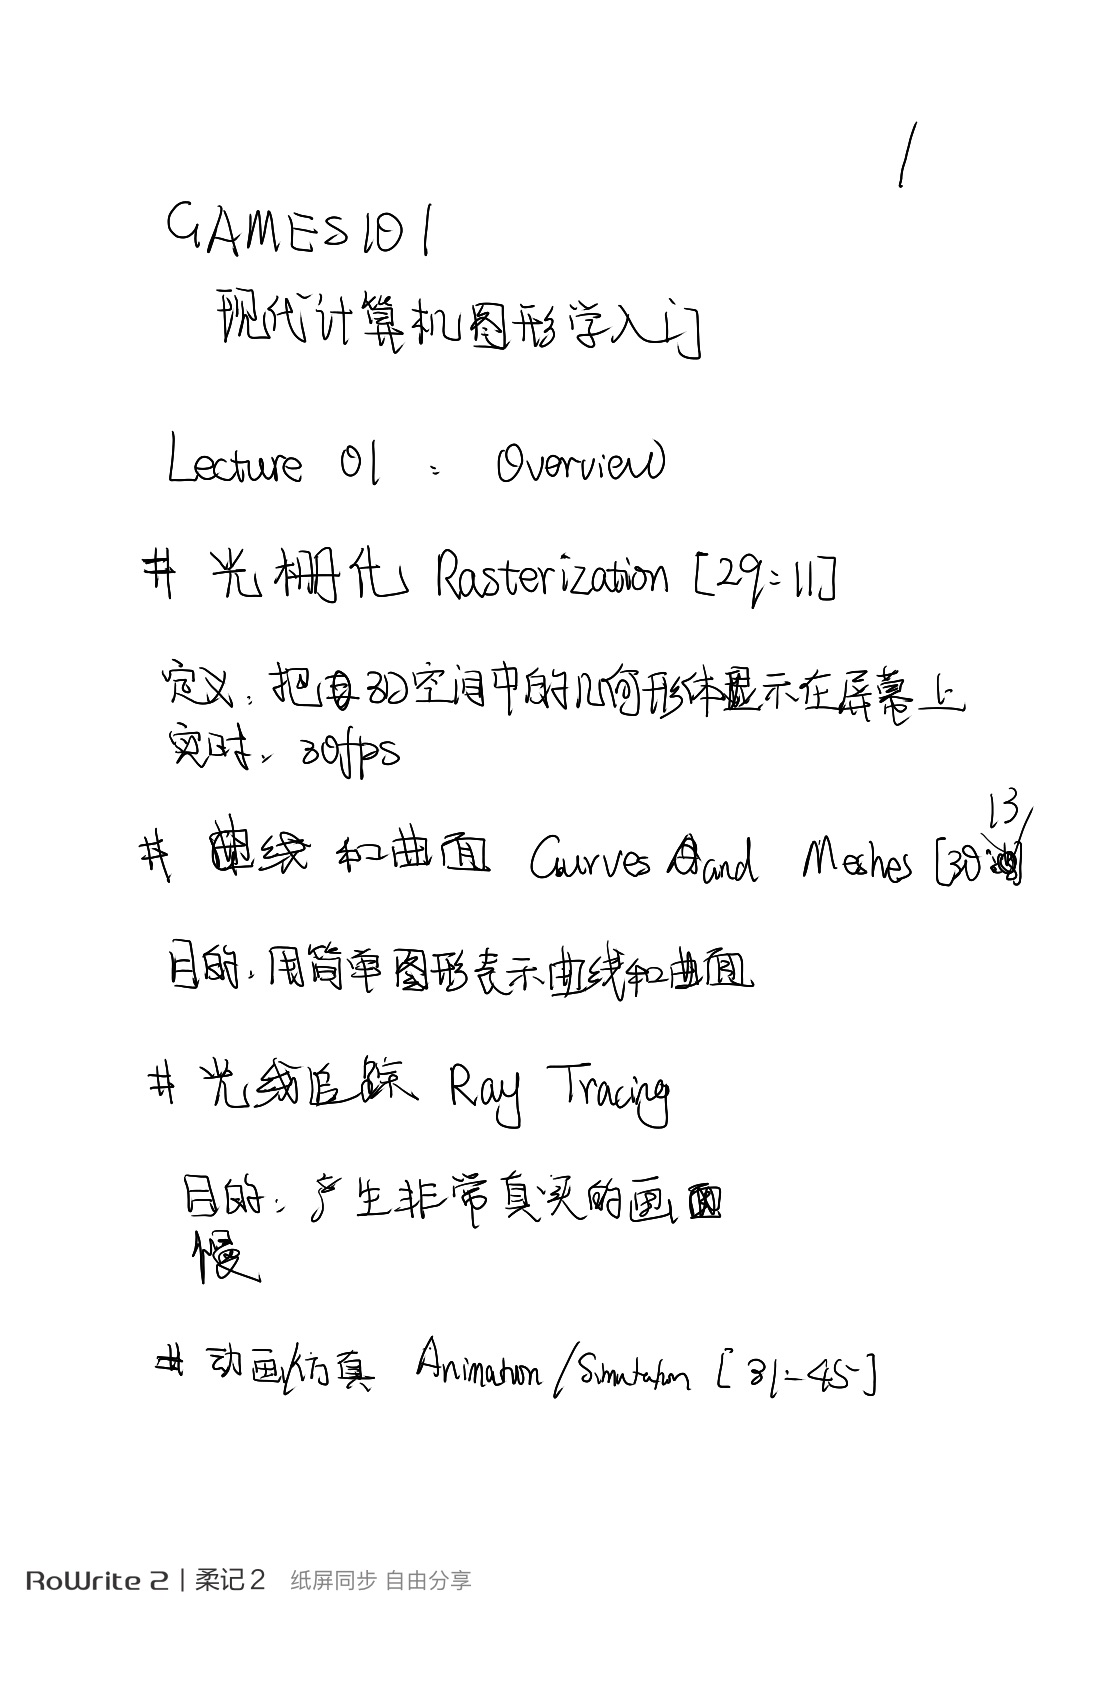 1
GAMES101
现代计算机图形学入门
Lecture 01 : Overview
# 光栅化 Rasterization [29:11]
定义：把3D空间中的几何形体显示在屏幕上
实时：30fps
# 曲线和曲面 Curves and Meshes [30:13]
目的：用简单图形表示曲线和曲面
# 光线追踪 Ray Tracing
目的：产生非常真实的画面
慢
# 动画/仿真 Animation/Simutation [31:45]
RoWrite 2 | 柔记2 纸屏同步 自由分享